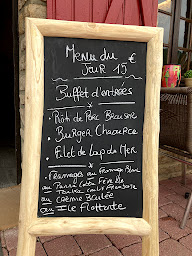 Menu du
Jour 15 €
Buffet d'entrées
x
• Rôti de Porc Braisé
• Burger Chaource
• Filet de Loup de Mer
• Fromages ou Fromage Blanc
ou Panna Cotta
ou
ou Crème Brulée
ou Ile Flottante